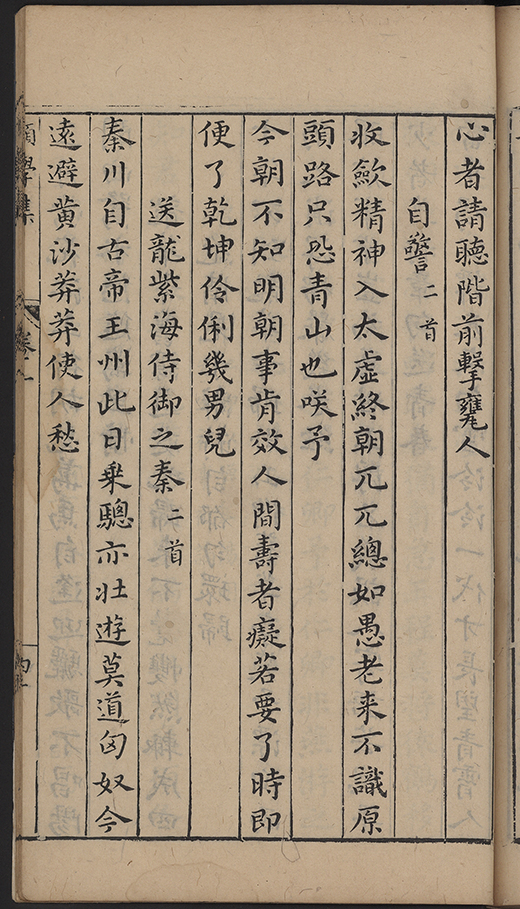 心者請聽階前擊甕人
自警二首
收斂精神入太虛終朝兀兀總如愚老来不識原
頭路只恐青山也咲予
今朝不知明朝事肯效人間壽者癡若要了時即
便了乾坤伶俐幾男兒
送龍紫海侍御之秦二首
秦川自古帝王州此日乗驄亦壮遊莫道匈奴今
遠避黄沙莽莽使人愁
學集
卷